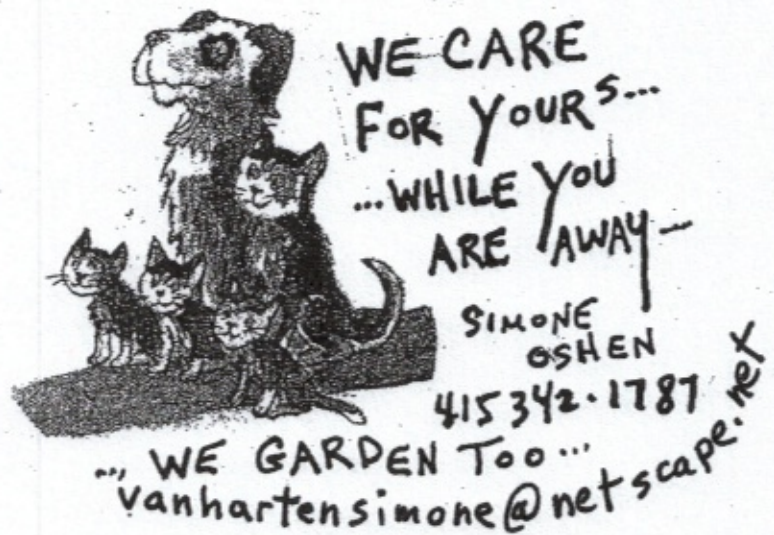 WE CARE
FOR YOURS...
...WHILE YOU
ARE AWAY-
SIMONE
OSHEN
415 342.1787
... WE GARDEN TOO...
vanhartensimone@netscape.net